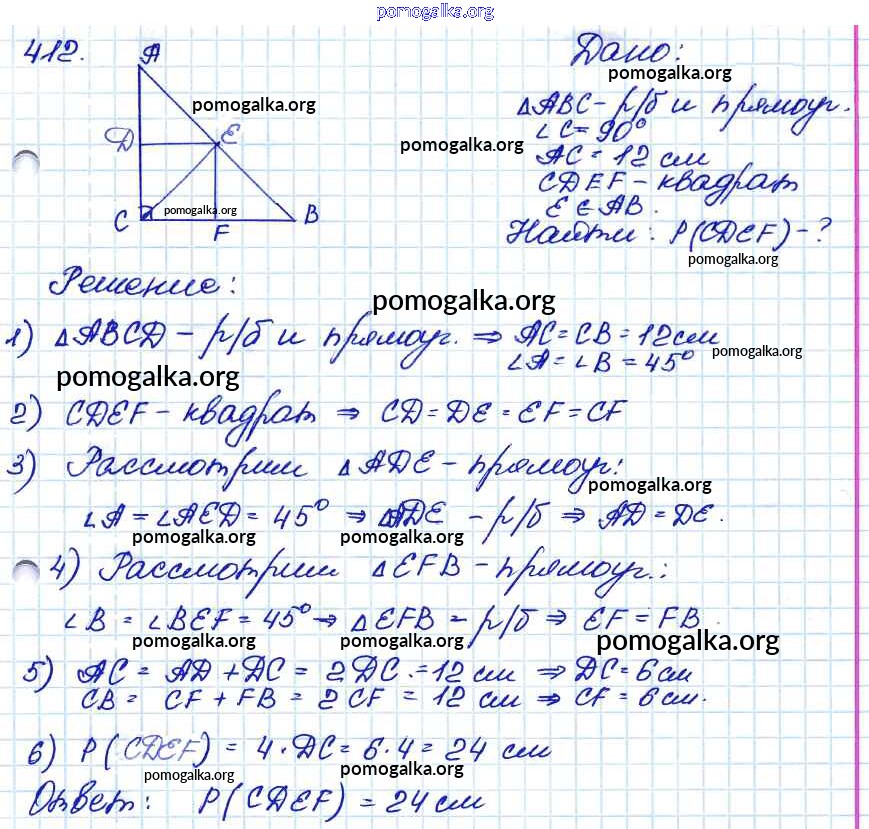 pomogalka.org
412.
A
D
E
C
F
B
pomogalka.org
pomogalka.org
Дано:
pomogalka.org
△ABC - р/б и прямоуг.
∠C = 90°
pomogalka.org
AC = 12 см
CDEF - квадрат
E ∈ AB.
Найти: P(CDEF) - ?
pomogalka.org
Решение:
pomogalka.org
1) △ABCD - р/б и прямоуг. ⇒ AC = CB = 12 см
∠A = ∠B = 45°
pomogalka.org
pomogalka.org
2) CDEF - квадрат ⇒ CD = DE = EF = CF
3) Рассмотрим △ADE - прямоуг:
pomogalka.org
∠A = ∠AED = 45° ⇒ △ADE - р/б ⇒ AD = DE.
pomogalka.org pomogalka.org
4) Рассмотрим △EFB - прямоуг.:
∠B = ∠BEF = 45° ⇒ △EFB - р/б ⇒ EF = FB
pomogalka.org pomogalka.org pomogalka.org
5) AC = AD + DC = 2DC = 12 см ⇒ DC = 6 см
CB = CF + FB = 2CF = 12 см ⇒ CF = 6 см.
6) P(CDEF) = 4·DC = 6·4 = 24 см
pomogalka.org pomogalka.org
Ответ: P(CDEF) = 24 см